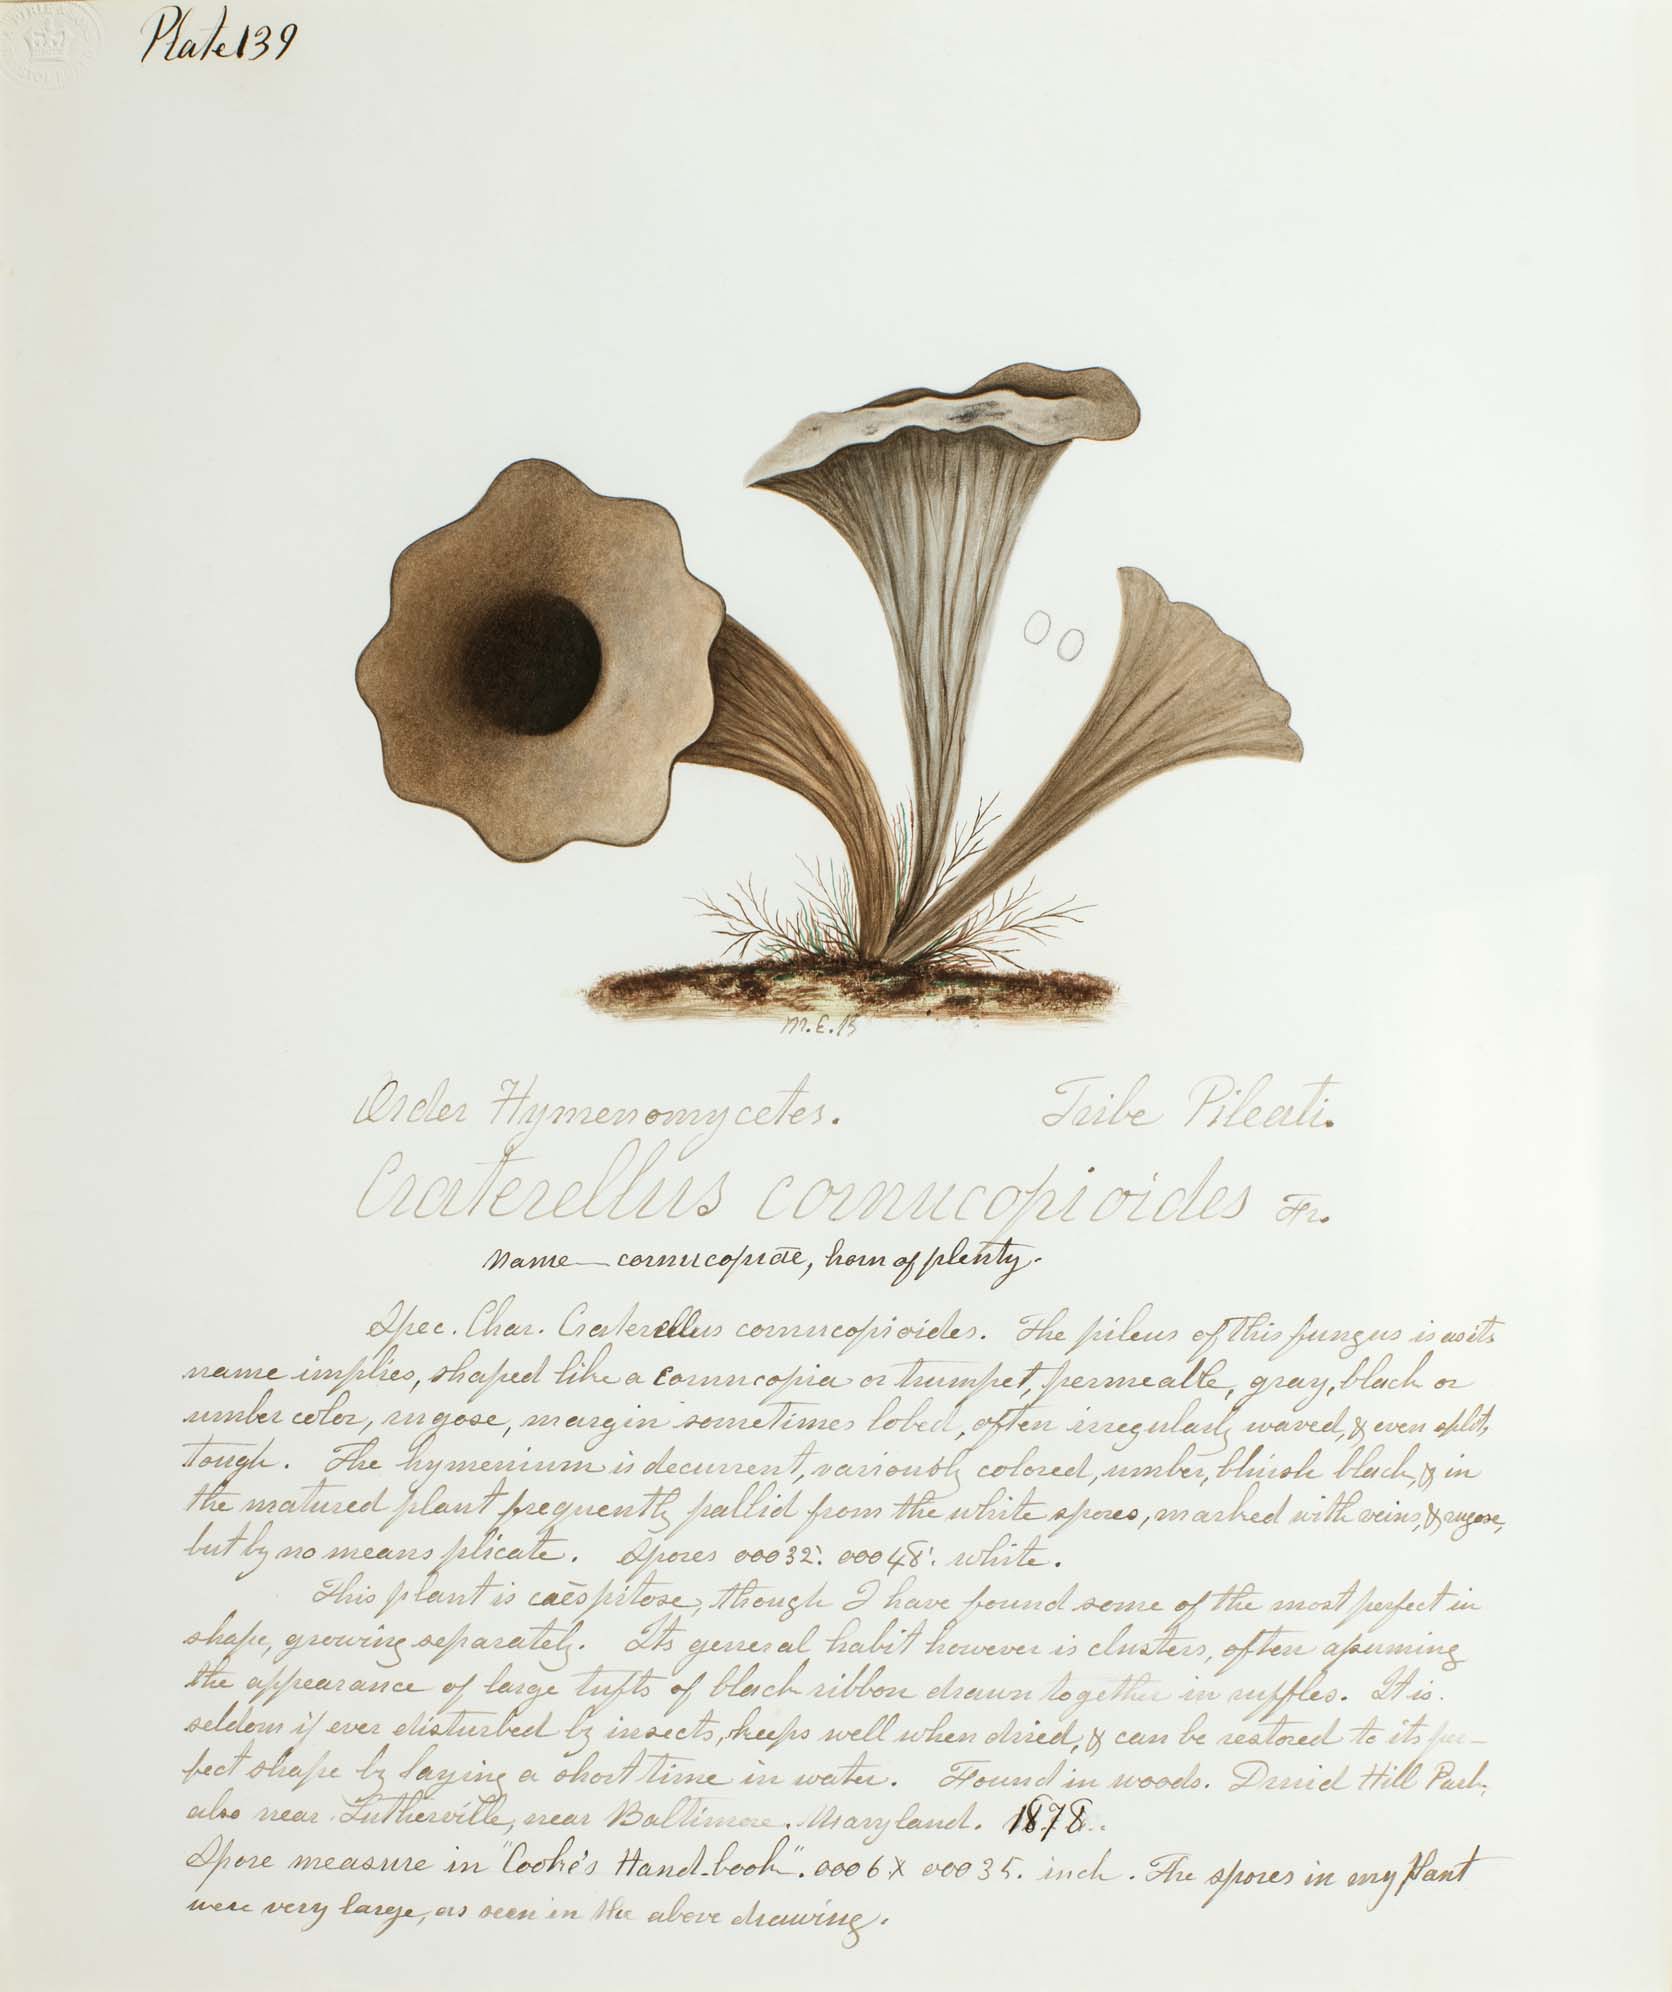 Plate 139
M.E.B
Order Hymenomycetes. Tribe Pileati.
Craterellus cornucopioides Fr.
Name — cornucopiae, horn of plenty.
Spec. Char. Craterellus cornucopioides. The pileus of this fungus is as its
name implies, shaped like a cornucopia or trumpet, permeable, gray, black or
umber color, rugose, margin sometimes lobed, often irregularly waved, & even split,
tough. The hymenium is decurrent, variously colored, umber, bluish black, & in
the matured plant frequently pallid from the white spores, marked with veins, & rugose,
but by no means plicate. Spores 00032". 00048". white.
This plant is caespitose, though I have found some of the most perfect in
shape, growing separately. Its general habit however is clusters, often assuming
the appearance of large tufts of black ribbon drawn together in ruffles. It is
seldom if ever disturbed by insects, keeps well when dried, & can be restored to its per-
fect shape by laying a short time in water. Found in woods. Druid Hill Park,
also near Lutherville, near Baltimore. Maryland. 1878.
Spore measure in "Cooke's Hand-book". .0006 x 00035. inch. The spores in my plant
were very large, as seen in the above drawing.